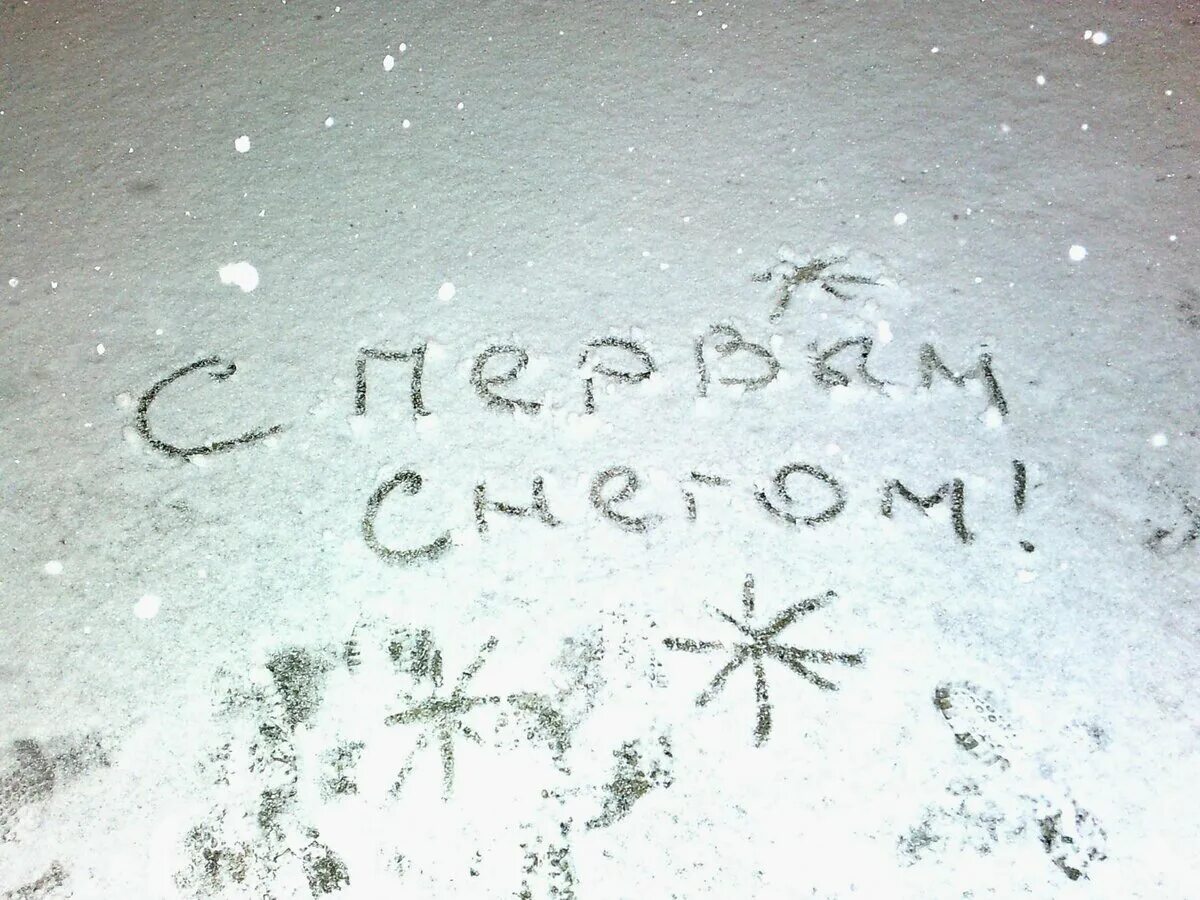 С первым
снегом!